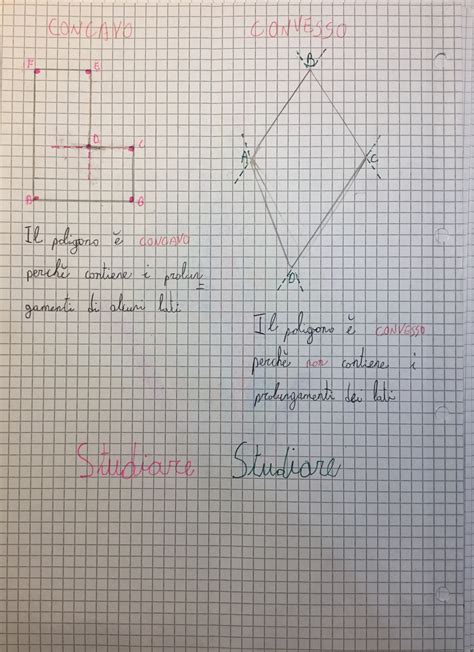 CONCAVO
CONVESSO
F
E
D
C
A
B
B
A
C
D
Il poligono è CONCAVO
perchè contiene i prolun
gamenti di alcuni lati
Il poligono è CONVESSO
perchè non contiene i
prolungamenti dei lati
Studiare Studiare